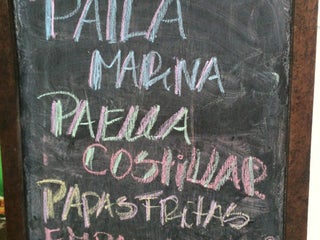 PAILA
MARINA
PAELLA
COSTILLAR
PAPAS FRITAS